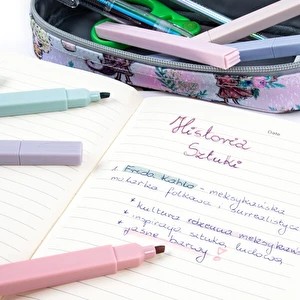 Date
Historia
Sztuki
1. Frida Kahlo - meksykańska
malarka folkowa i surrealistyczna
* kultura rdzenna meksykańska
* inspiracja sztuką ludową
* jasne barwy!